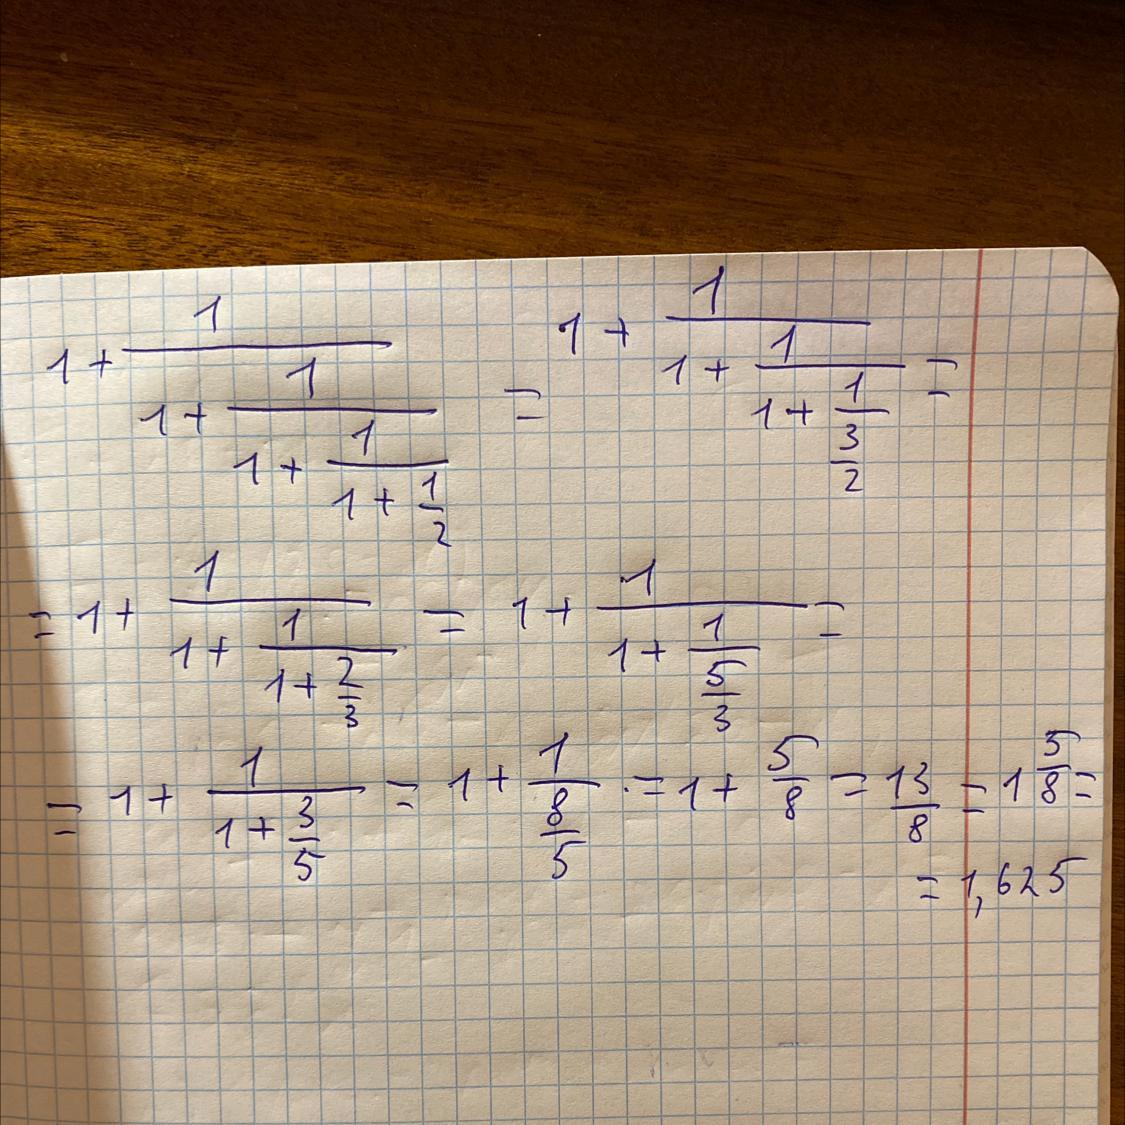 1 + 1/(1 + 1/(1 + 1/(1 + 1/2))) = 1 + 1/(1 + 1/(1 + 1/(3/2))) =
= 1 + 1/(1 + 1/(1 + 2/3)) = 1 + 1/(1 + 1/(5/3)) =
= 1 + 1/(1 + 3/5) = 1 + 1/(8/5) . = 1 + 5/8 = 13/8 = 1 5/8 =
= 1,625